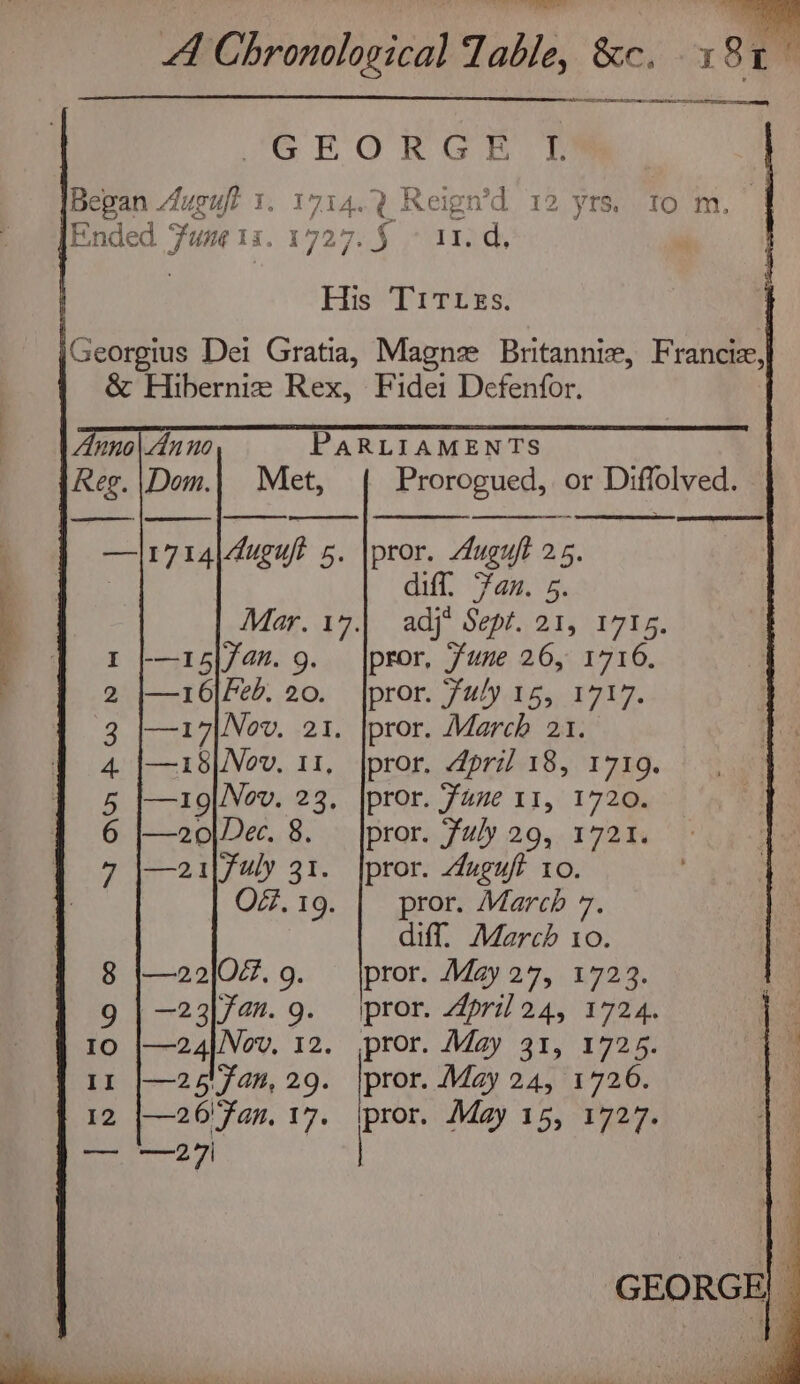 A Chronological Table, &c. 181
GEORGE I.
Began August 1. 1714. } Reign'd 12 yrs. 10 m.
Ended June 11. 1727. } 11. d.
His TITLES.
Georgius Dei Gratia, Magnæ Britanniæ, Franciæ,
& Hiberniæ Rex, Fidei Defenſor.
Anno Anno PARLIAMENTS
Reg. Dom. Met, Prorogued, or Diſſolved.
— 1714 Auguſt 5. pror. Auguſt 25.
diſſ. Jan. 5.
Mar. 17. adjᵈ Sept. 21, 1715.
1 —15 Jan. 9. pror, June 26, 1716.
2 —16 Feb. 20. pror. July 15, 1717.
3 —17 Nov. 21. pror. March 21.
4 —18 Nov. 11, pror. April 18, 1719.
5 —19 Nov. 23. pror. June 11, 1720.
6 —20 Dec. 8. pror. July 29, 1721.
7 —21 July 31. pror. Auguſt 10.
Oct. 19. pror. March 7.
diſſ. March 10.
8 —22 Oct. 9. pror. May 27, 1723.
9 —23 Jan. 9. pror. April 24, 1724.
10 —24 Nov. 12. pror. May 31, 1725.
11 —25 Jan, 29. pror. May 24, 1726.
12 —26 Jan. 17. pror. May 15, 1727.
— —27
GEORGE